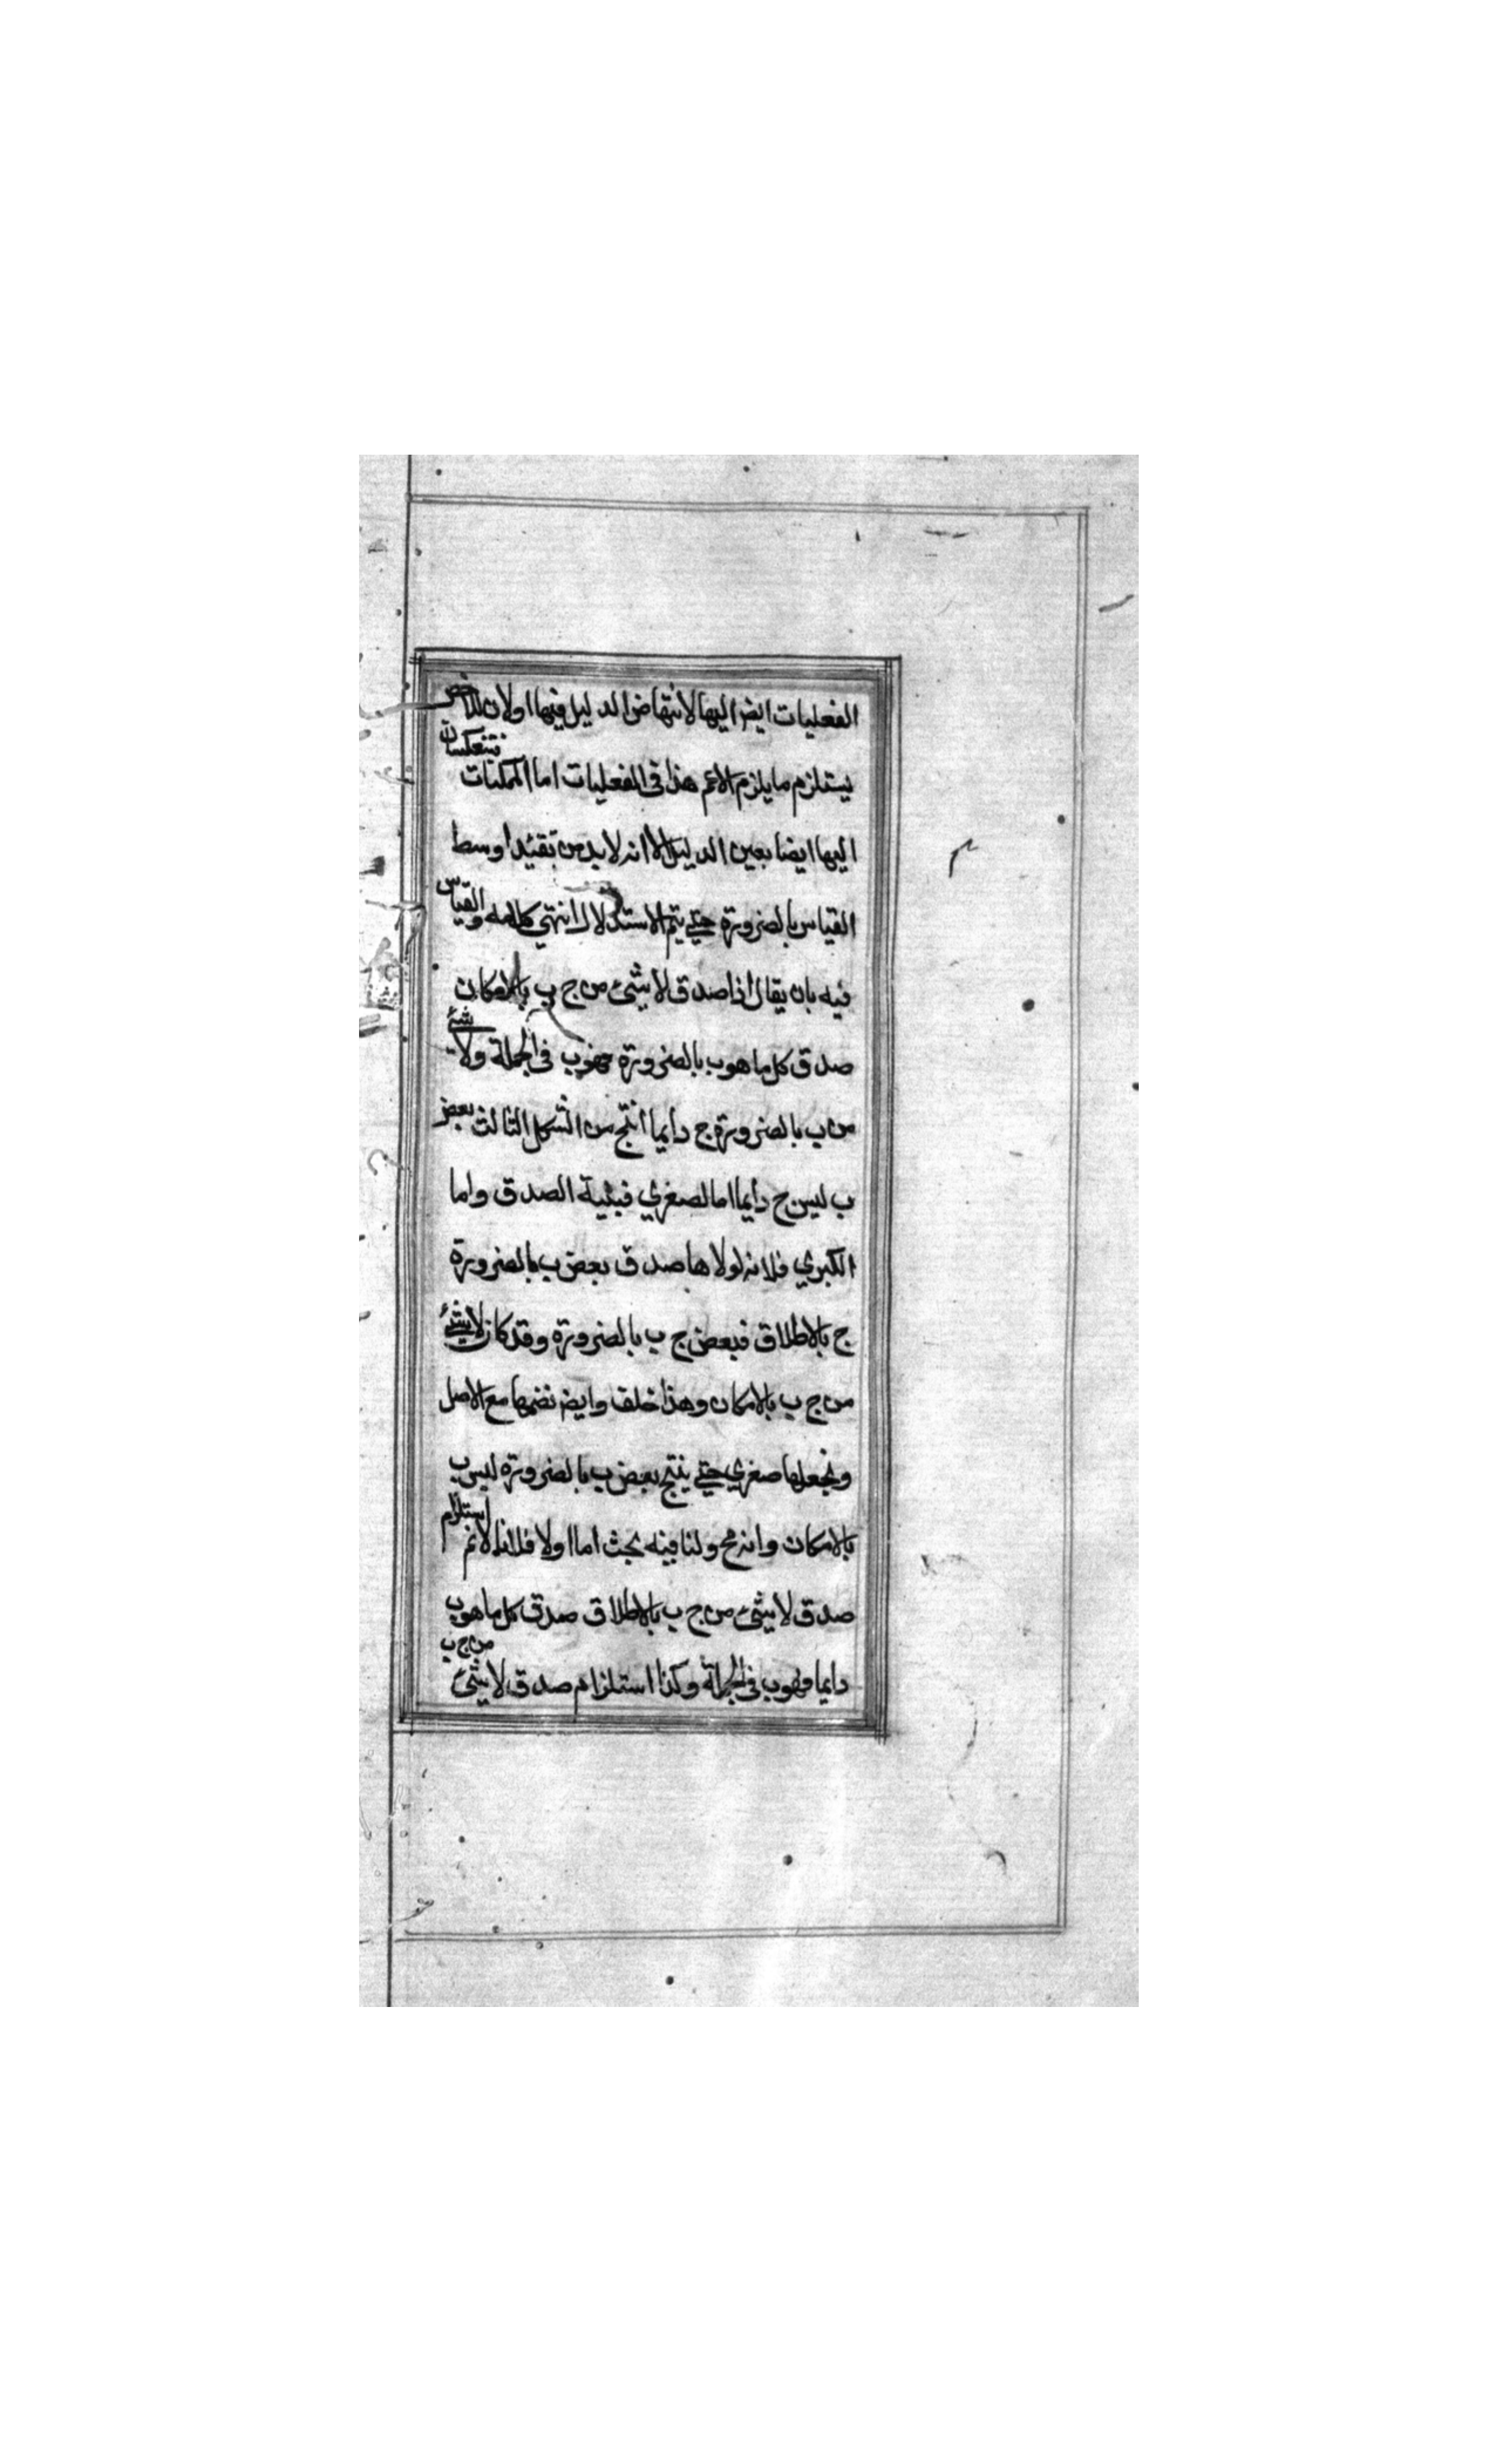 الفعليات ايض اليها لانتهاض الدليل فيها او لان الاخص
يستلزم ما يلزم الاعم هذا فى الفعليات اما الممكنات فتنعكسان
اليها ايضا بعين الدليل الا انه لا بد من تقئيد اوسط
القياس بالضرورة حتى يتم الاستدلال انتهي كلامه والقياس
فيه بان يقال اذا صدق لا شئ من ج ب بالامكان
صدق كل ما هو ب بالضرورة فهو ب فى الجملة ولا شئ
من ب بالضرورة ج دايما انتج من الشكل الثالث بعض
ب ليس ج دايما اما الصغري فبئية الصدق واما
الكبري فلانه لولاها صدق بعض ب بالضرورة
ج بالاطلاق فبعض ج ب بالضرورة وقد كان لا شئ
من ج ب بالامكان وهذا خلف وايض نضمها مع الاصل
ونجعلها صغري حتى ينتج بعض ب بالضرورة ليس ب
بالامكان وانه مح ولنا فيه بحث اما اولا فلانا لانم استلزام
صدق لا شئ من ج ب بالاطلاق صدق كل ما هو ب
دايما فهو ب فى الجملة وكذا استلزام صدق لا شئ من ج ب